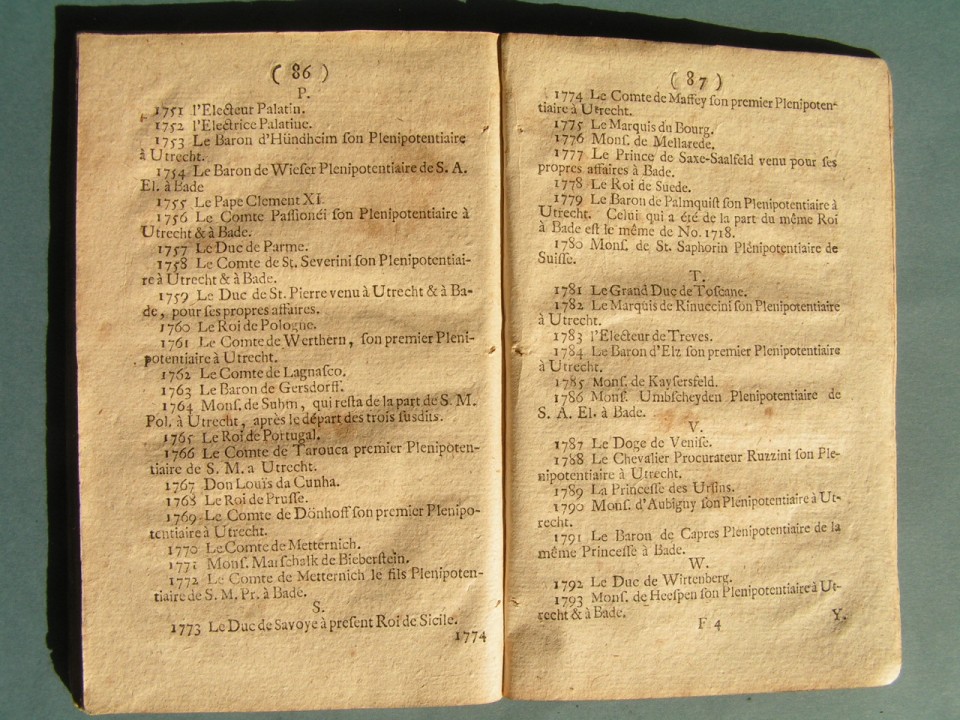 ( 86 )
P.
1751 l'Electeur Palatin.
1752 l'Electrice Palatine.
1753 Le Baron d'Hündheim ſon Plenipotentiaire
à Utrecht.
1754 Le Baron de Wieſer Plenipotentiaire de S. A.
El. à Bade
1755 Le Pape Clement XI.
1756 Le Comte Paſſionéi ſon Plenipotentiaire à
Utrecht & à Bade.
1757 Le Duc de Parme.
1758 Le Comte de St. Severini ſon Plenipotentiai-
re à Utrecht & à Bade.
1759 Le Duc de St. Pierre venu à Utrecht & à Ba-
de, pour ſes propres affaires.
1760 Le Roi de Pologne.
1761 Le Comte de Werthern, ſon premier Pleni-
potentiaire à Utrecht.
1762 Le Comte de Lagnaſco.
1763 Le Baron de Gersdorff.
1764 Monſ. de Suhm, qui reſta de la part de S. M.
Pol. à Utrecht, après le départ des trois ſusdits.
1765 Le Roi de Portugal.
1766 Le Comte de Tarouca premier Plenipoten-
tiaire de S. M. a Utrecht.
1767 Don Louïs da Cunha.
1768 Le Roi de Pruſſe.
1769 Le Comte de Dönhoff ſon premier Plenipo-
tentiaire à Utrecht.
1770 Le Comte de Metternich.
1771 Monſ. Marſchalk de Bieberſtein.
1772 Le Comte de Metternich le fils Plenipoten-
tiaire de S. M. Pr. à Bade.
S.
1773 Le Duc de Savoye à preſent Roi de Sicile.
1774
( 87 )
1774 Le Comte de Maffey ſon premier Plenipoten-
tiaire à Utrecht.
1775 Le Marquis du Bourg.
1776 Monſ. de Mellarede.
1777 Le Prince de Saxe-Saalfeld venu pour ſes
propres affaires à Bade.
1778 Le Roi de Suede.
1779 Le Baron de Palmquiſt ſon Plenipotentiaire à
Utrecht. Celui qui a été de la part du même Roi
à Bade eſt le même de No. 1718.
1780 Monſ. de St. Saphorin Plénipotentiaire de
Suiſſe.
T.
1781 Le Grand Duc de Toſcane.
1782 Le Marquis de Rinuccini ſon Plenipotentiaire
à Utrecht.
1783 l'Electeur de Treves.
1784 Le Baron d'Elz ſon premier Plenipotentiaire
à Utrecht.
1785 Monſ. de Kayſersfeld.
1786 Monſ. Umbſcheyden Plenipotentiaire de
S. A. El. à Bade.
V.
1787 Le Doge de Veniſe.
1788 Le Chevalier Procurateur Ruzzini ſon Ple-
nipotentiaire à Utrecht.
1789 La Princeſſe des Urſins.
1790 Monſ. d'Aubigny ſon Plenipotentiaire à Ut-
recht.
1791 Le Baron de Capres Plenipotentiaire de la
même Princeſſe à Bade.
W.
1792 Le Duc de Wirtenberg.
1793 Monſ. de Heeſpen ſon Plenipotentiaire à Ut-
recht & à Bade.
F 4 Y.